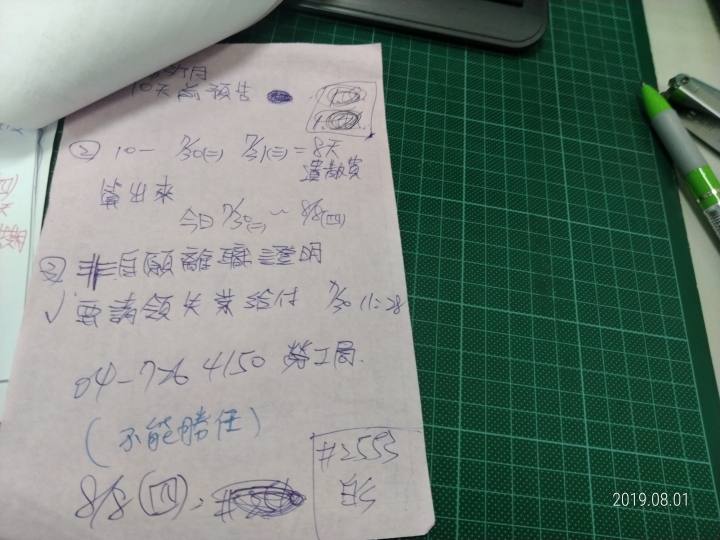 10天前預告
② 10- 7/30(二) 7/31(三) = 8天
遣散費
算出來
今日 7/30(二) ~ 8/8(四)
③ 非自願離職證明
✓ 要請領失業給付 7/30 11:28
04-726 4150 勞工局.
(不能勝任)
#2553
8/8 (四)
2019.08.01